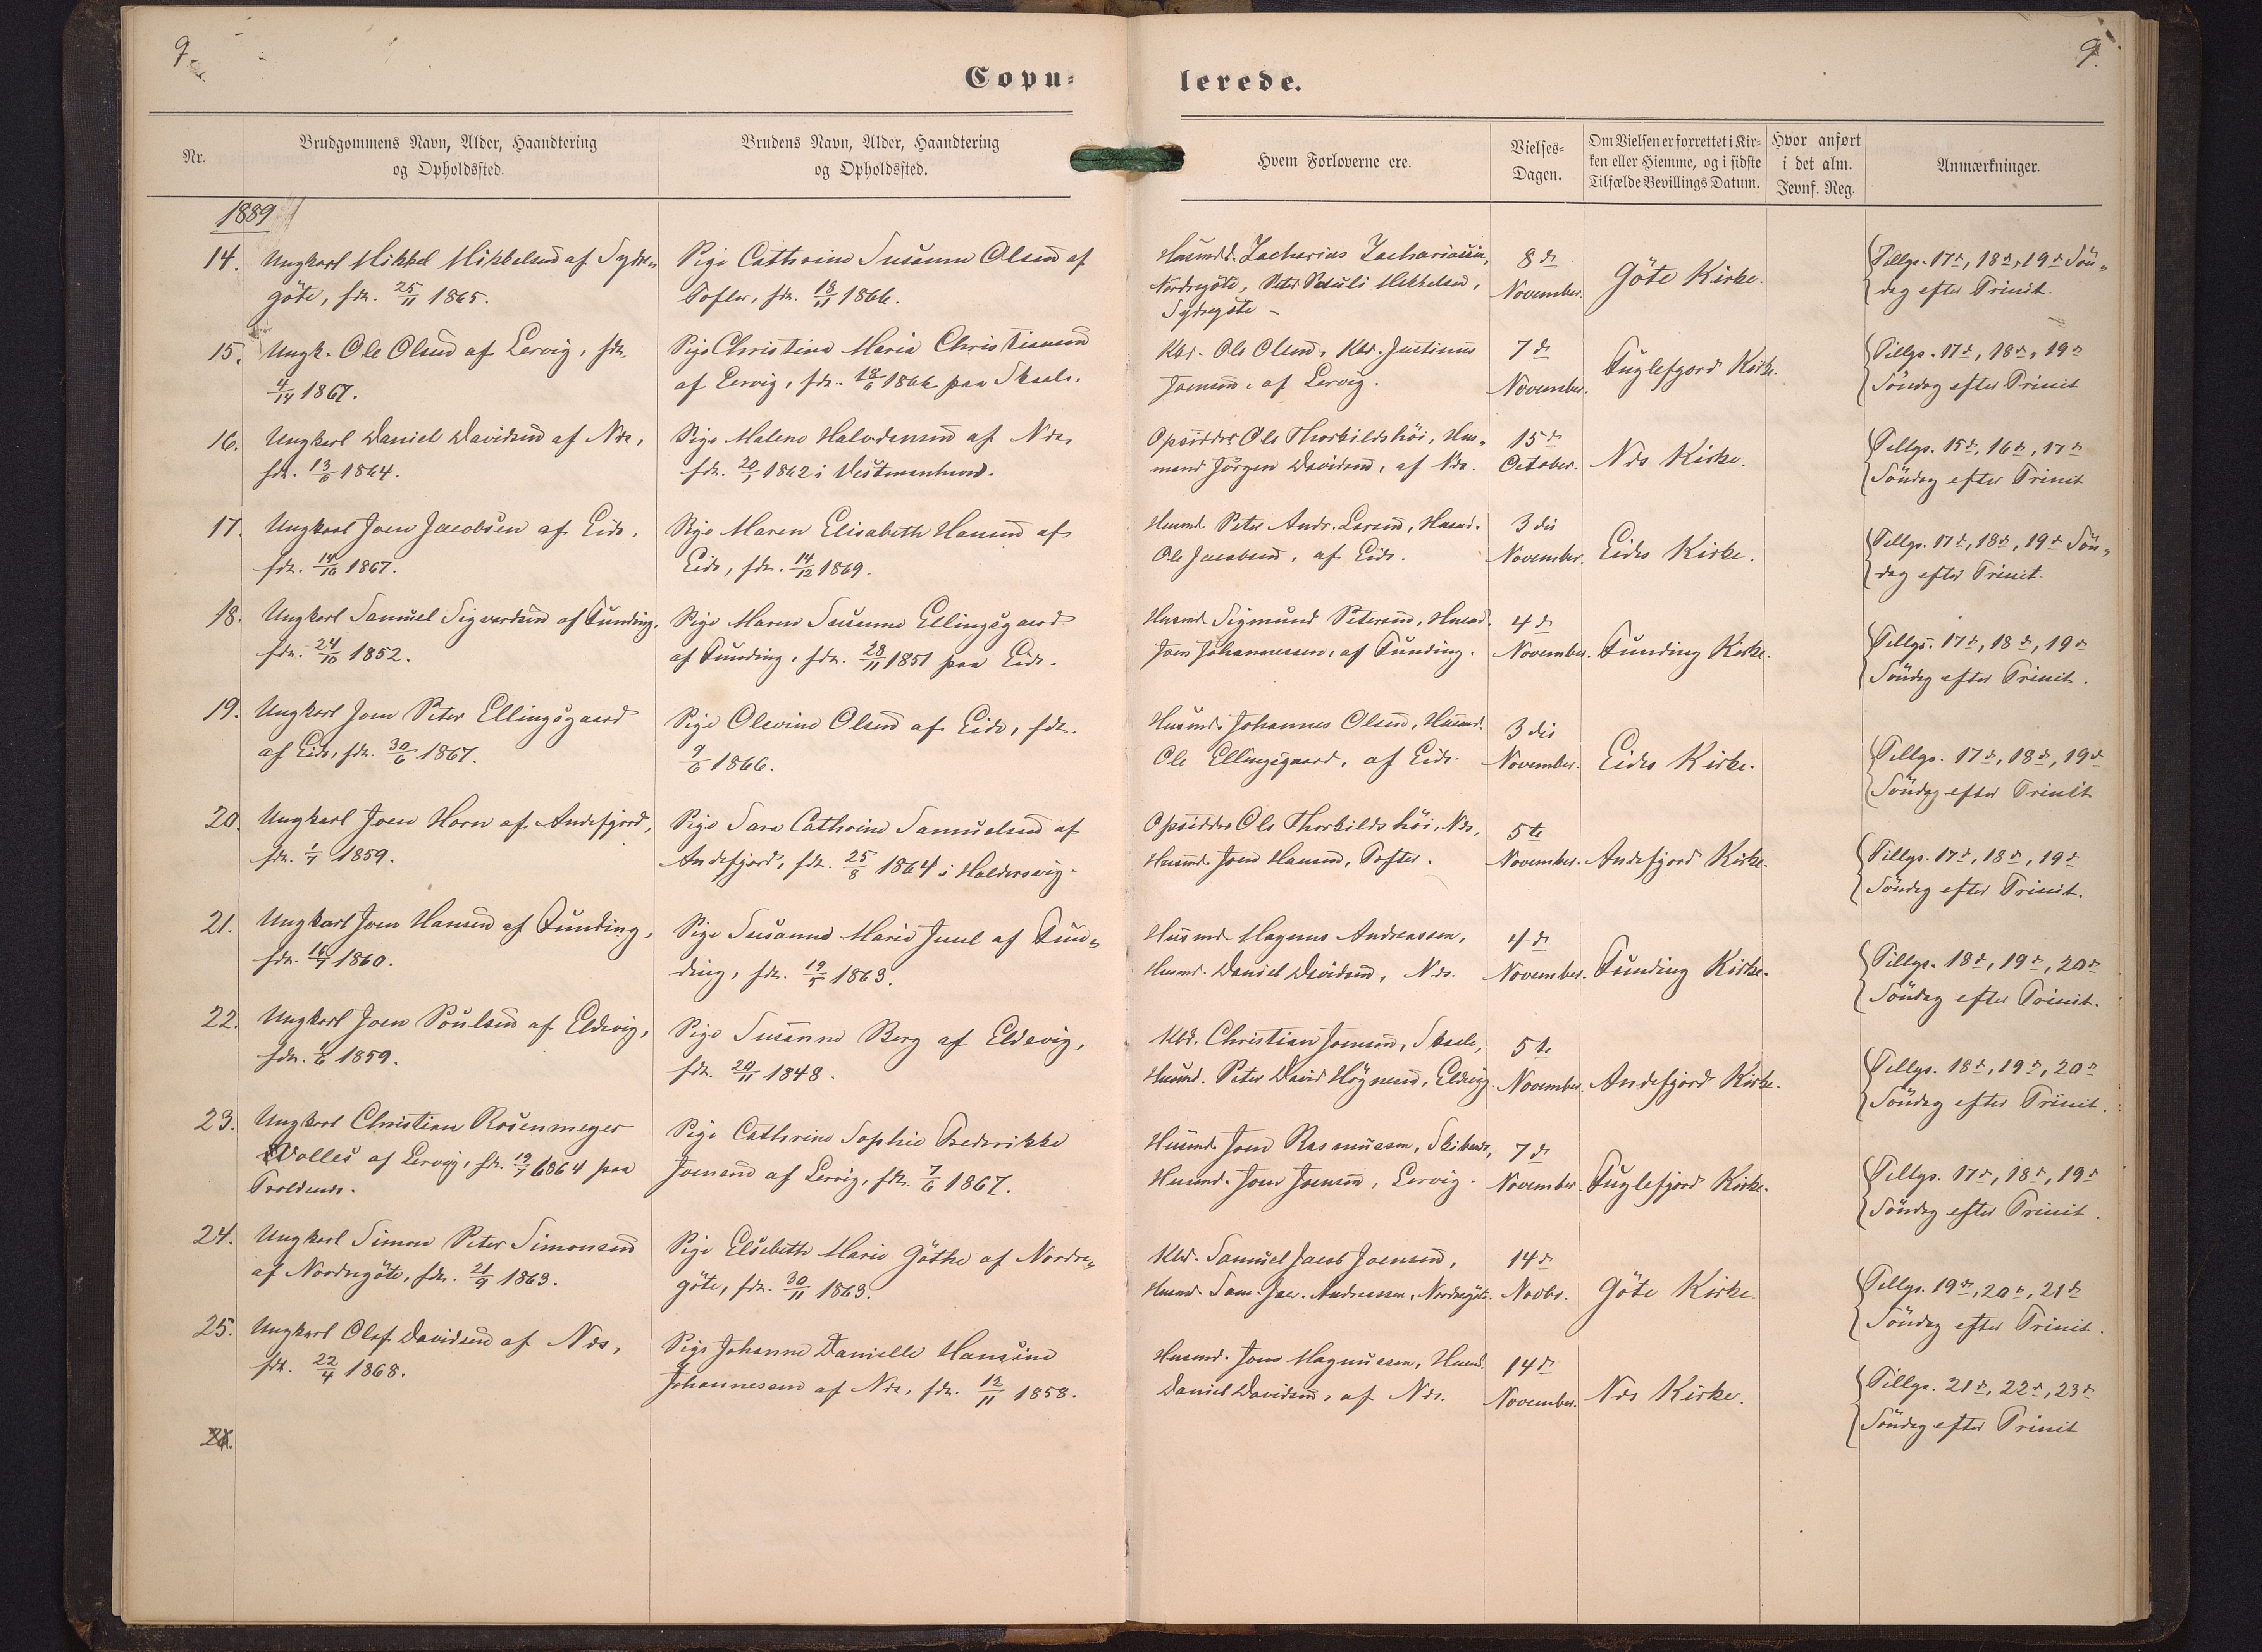 9
9.
Copu-
lerede.
Nr.
Brudgommens Navn, Alder, Haandtering
og Opholdssted.
Brudens Navn, Alder, Haandtering
og Opholdssted.
Hvem Forloverne ere.
Vielses-
Dagen.
Om Vielsen er forrettet i Kir-
ken eller Hiemme, og i sidste
Tilfælde Bevillings Datum.
Hvor anført
i det alm.
Jevnf. Reg.
Anmærkninger.
1889
14.
Ungkarl Mikkel Mikkelsen af Sydre„
göte, fdt. 25/11 1865.
Pige Cathrine Susanne Olsen af
Tofter, fdt. 18/11 1866.
Husmd. Zacharias Zachariasen,
Nordregöte, Peter Pauli Mikkelsen,
Sydregöte –
8de
November.
Göte Kirke.
Tillys. 17de, 18de, 19de Sön„
dag efter Trinit.
15.
Ungk. Ole Olsen af Lervig, fdt.
4/14 1867.
Pige Christine Marie Christiansen
af Lervig, fdt. 18/6 1866 paa Skaale.
Kbd. Ole Olsen, Kbd. Justinus
Joensen, af Lervig.
7de
November.
Fuglefjord Kirke.
Tillys. 17de, 18de, 19de
Söndag efter Trinit
16.
Ungkarl Daniel Davidsen af Nds,
fdt. 13/6 1864.
Pige Malene Halvdansen af Nds,
fdt. 20/1 1862 i Vestmanhavn.
Opsidder Ole Thorkildshöi, Hus„
mand Jörgen Davidsen, af Nds.
15de
October.
Nds Kirke.
Tillys. 15de, 16de, 17de
Söndag efter Trinit
17.
Ungkarl Joen Jacobsen af Eide,
fdt. 14/10 1867.
Pige Maren Elisabeth Hansen af
Eide, fdt. 14/12 1869.
Husmd. Peter Andr. Larsen, Husmd.
Ole Jacobsen, af Eide.
3die
November.
Eides Kirke.
Tillys. 17de, 18de, 19de Sön„
dag efter Trinit.
18.
Ungkarl Samuel Sigvardsen af Funding.
fdt. 24/10 1852.
Pige Maren Susanne Ellingsgaard
af Funding, fdt. 28/11 1851 paa Eide.
Husmd. Sigmund Petersen, Husmd.
Joen Johannessen, af Funding.
4de
November.
Funding Kirke.
Tillys. 17de, 18de, 19de
Söndag efter Trinit.
19.
Ungkarl Joen Peter Ellingsgaard
af Eide, fdt. 30/6 1867.
Pige Olevine Olsen af Eide, fdt.
9/6 1866.
Husmd. Johannes Olsen, Husmd.
Ole Ellingsgaard, af Eide.
3die
November.
Eides Kirke.
Tillys. 17de, 18de, 19de
Söndag efter Trinit
20.
Ungkarl Joen Horn af Andefjord,
fdt. 1/7 1859.
Pige Sara Cathrine Samuelsen af
Andefjord, fdt. 25/8 1864 i Haldersvig.
Opsidder Ole Thorkildshöi, Nds,
Husmd. Joen Hansen, Tofter.
5te
November.
Andefjord Kirke.
Tillys. 17de, 18de, 19de
Söndag efter Trinit.
21.
Ungkarl Joen Hansen af Funding,
fdt. 16/7 1860.
Pige Susanne Marie Juul af Fun„
ding, fdt. 19/5 1863.
Husmd. Magnus Andreassen,
Husmd. Daniel Davidsen, Nds.
4de
November.
Funding Kirke.
Tillys. 18de, 19de, 20de
Söndag efter Trinit.
22.
Ungkarl Joen Poulsen af Eldevig,
fdt. 1/6 1859.
Pige Susanne Berg af Eldevig,
fdt. 20/11 1848.
Kbd. Christian Joensen, Skaale,
Husmd. Peter David Högnesen, Eldevig.
5te
November.
Andefjord Kirke.
Tillys. 18de, 19de, 20de
Söndag efter Trinit.
23.
Ungkarl Christian Rosenmeyer
Wolles af Lervig, fdt. 19/7 1864 paa
Troldenæs.
Pige Cathrine Sophie Frederikke
Joensen af Lervig, fdt. 7/6 1867.
Husmd. Joen Rasmussen, Skibenæs,
Husmd. Joen Joensen, Lervig.
7de
November.
Fuglefjord Kirke.
Tillys. 17de, 18de, 19de
Söndag efter Trinit.
24.
Ungkarl Simon Peter Simonsen
af Nordregöte, fdt. 21/9 1863.
Pige Elsebeth Marie Göthe af Nordre„
göte, fdt. 30/11 1863.
Kbd. Samuel Jacob Joensen,
Husmd. Sam. Jac. Andreassen, Nordregöte.
14de
Novbr.
Göte Kirke.
Tillys. 19de, 20de, 21de
Söndag efter Trinit.
25.
Ungkarl Olaf Davidsen af Nds,
fdt. 22/4 1868.
Pige Johanne Danielle Hansine
Johannessen af Nds, fdt. 12/11 1858.
Husmd. Joen Magnussen, Husmd.
Daniel Davidsen, af Nds.
14de
November.
Nds Kirke.
Tillys. 21de, 22de, 23de
Söndag efter Trinit
26.